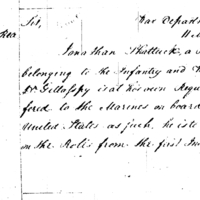 Sir, War Depart
Jonathan Shattuck, a
belonging to the Infantry and
Dr Gillaspy is at his own Requ
fered to the Marines on board
United States as such, he is to
on the Rolls from the first